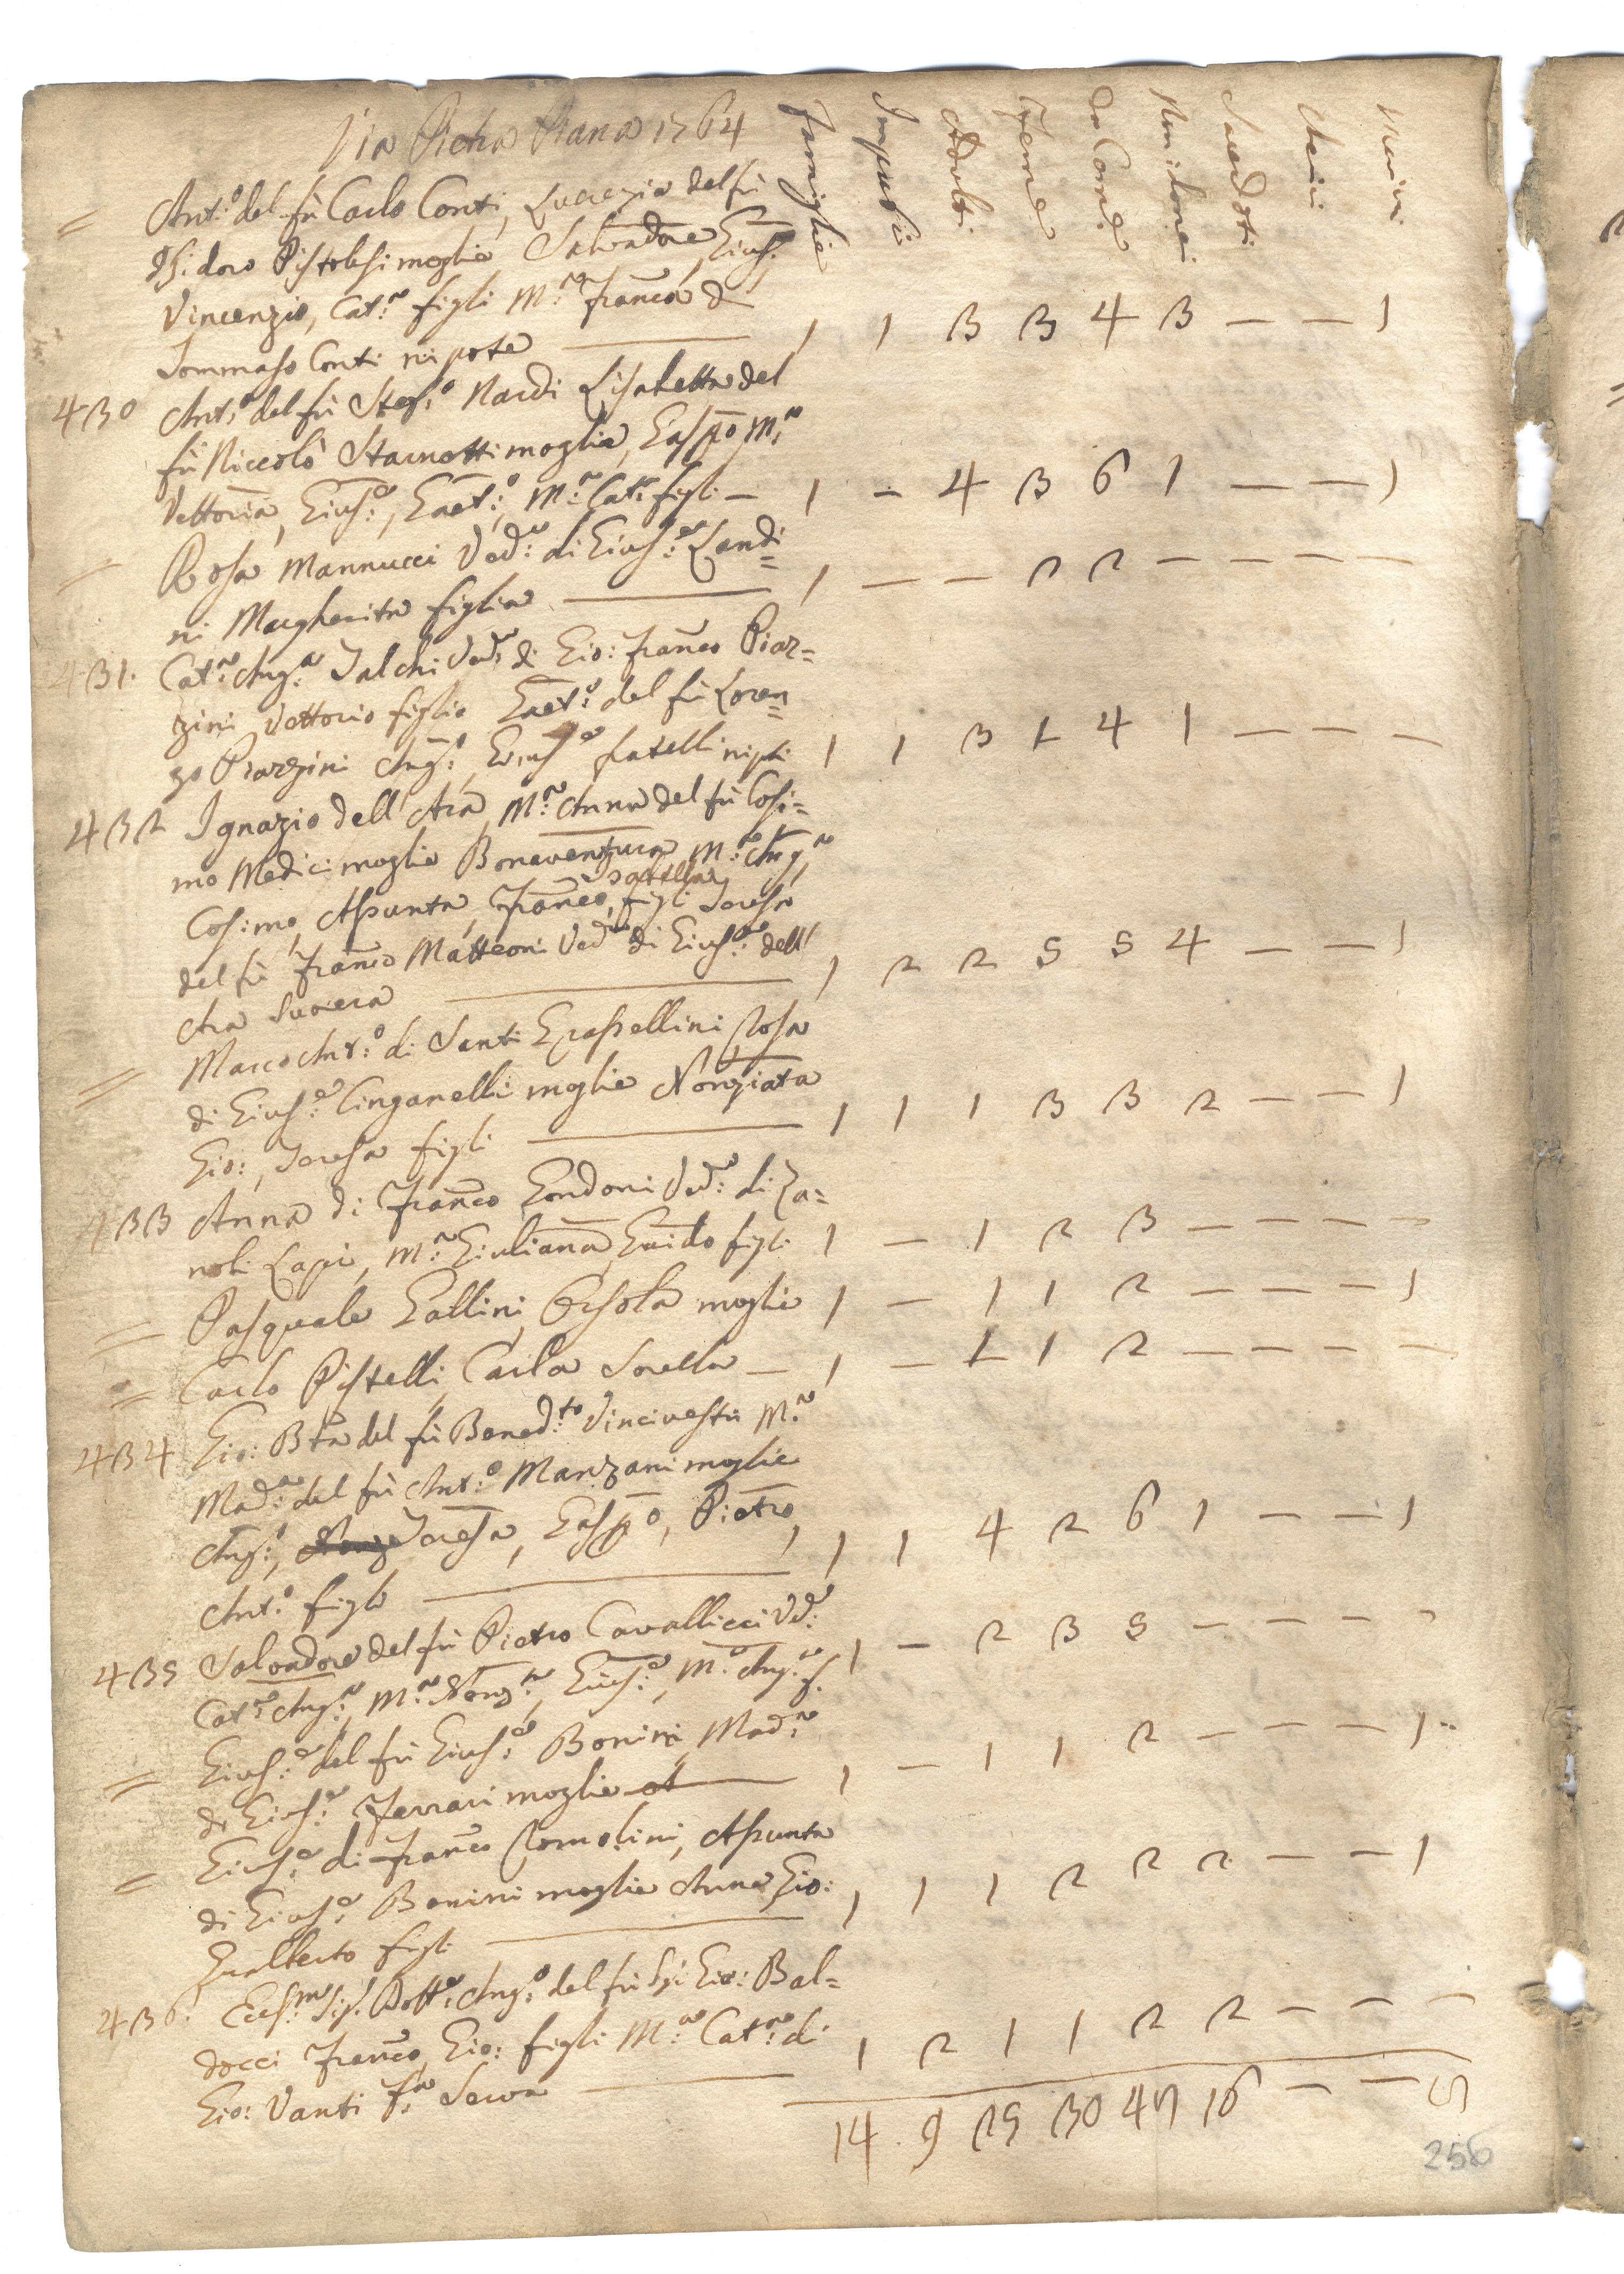 Via Pietra Piana 1764
Famiglie Impuberi Adulti Feme Da Come Nin: Come Sacerdoti Cherici Mariti
= Ant:o del fù Carlo Conti, Lucrezia del fù
Isidoro Pistolesi moglie Salvadore, Gius:e
Vincenzio, Cat:a figli M:a Franca di
Tommaso Conti nipote — 1 1 3 3 4 3 — — 1
430 Ant:o del fù Stef:o Nardi Lisabetta del
fù Niccolò Starnotti moglie, Gasp̄o M:a
Vettoria, Gius:e, Gaet:o, M:a Cat:a figli — 1 — 4 3 6 1 — — 1
= Rosa Mannucci Ved:a di Gius:e Landi=
ni Margherita figlia — 1 — — 2 2 — — — —
431. Cat:a Ang:a Falchi Ved:a di Gio: Franco Piaz=
zini Vettorio figlio Gaet:o del fù Loren=
zo Piazzini Ang:o, Gius:e fratelli nipti 1 1 3 1 4 1 — — —
432 Ignazio dell'Ara, M:a Anna del fù Cosi=
mo Medici moglie Bonaventura, M:a Ang:a
Cosimo, Assunta, Franco, figli Teresa
del fù Franco Matteoni Ved:a di Gius:e dell'
Ara Suocera — 1 2 2 5 5 4 — — 1
= Marco Ant:o di Santi Grassellini Rosa
di Gius:e Cinganelli moglie Nonziata
Gio:, Teresa figli — 1 1 1 3 3 2 — — 1
433 Anna di Franco Gondoni Ved:a di Za=
nobi Lapi, M:a Giuliana, Guido figli 1 — 1 2 3 — — — —
= Pasquale Gallini, Orsola moglie 1 — 1 1 2 — — — 1
= Carlo Pistelli, Carla Sorella — 1 — 1 1 2 — — — —
434 Gio: Bta del fù Bened:to Vincivesti M:a
Mad:a del fù Ant:o Manzani moglie
Ang:o, Teresa, Gasp̄o, Pietro,
Ant:o figli — 1 1 4 2 6 1 — — 1
435 Salvadore del fù Pietro Cavallicci Vd:o
Cat:a Ang:a, M:a Nonz:a, Gius:e, M:a Ang:a f. 1 — 2 3 5 — — — —
= Gius:e del fù Gius:e Bonini, Mad:a
di Gius:e Ferrari moglie — 1 — 1 1 2 — — — 1
= Gius:e di Franco Romolini, Assunta
di Gius:e Bonini moglie Anna, Gio:
Gualberto figli — 1 1 1 2 2 2 — — 1
436. Ecc:mo Sig. Dott:e Ang:o del fù Sig: Gio: Bal=
docci Franco, Gio: figli M:a Cat:a di
Gio: Vanti f:a Serva — 1 2 1 1 2 2 — — —
14. 9 25 30 47 16 — — 5
256